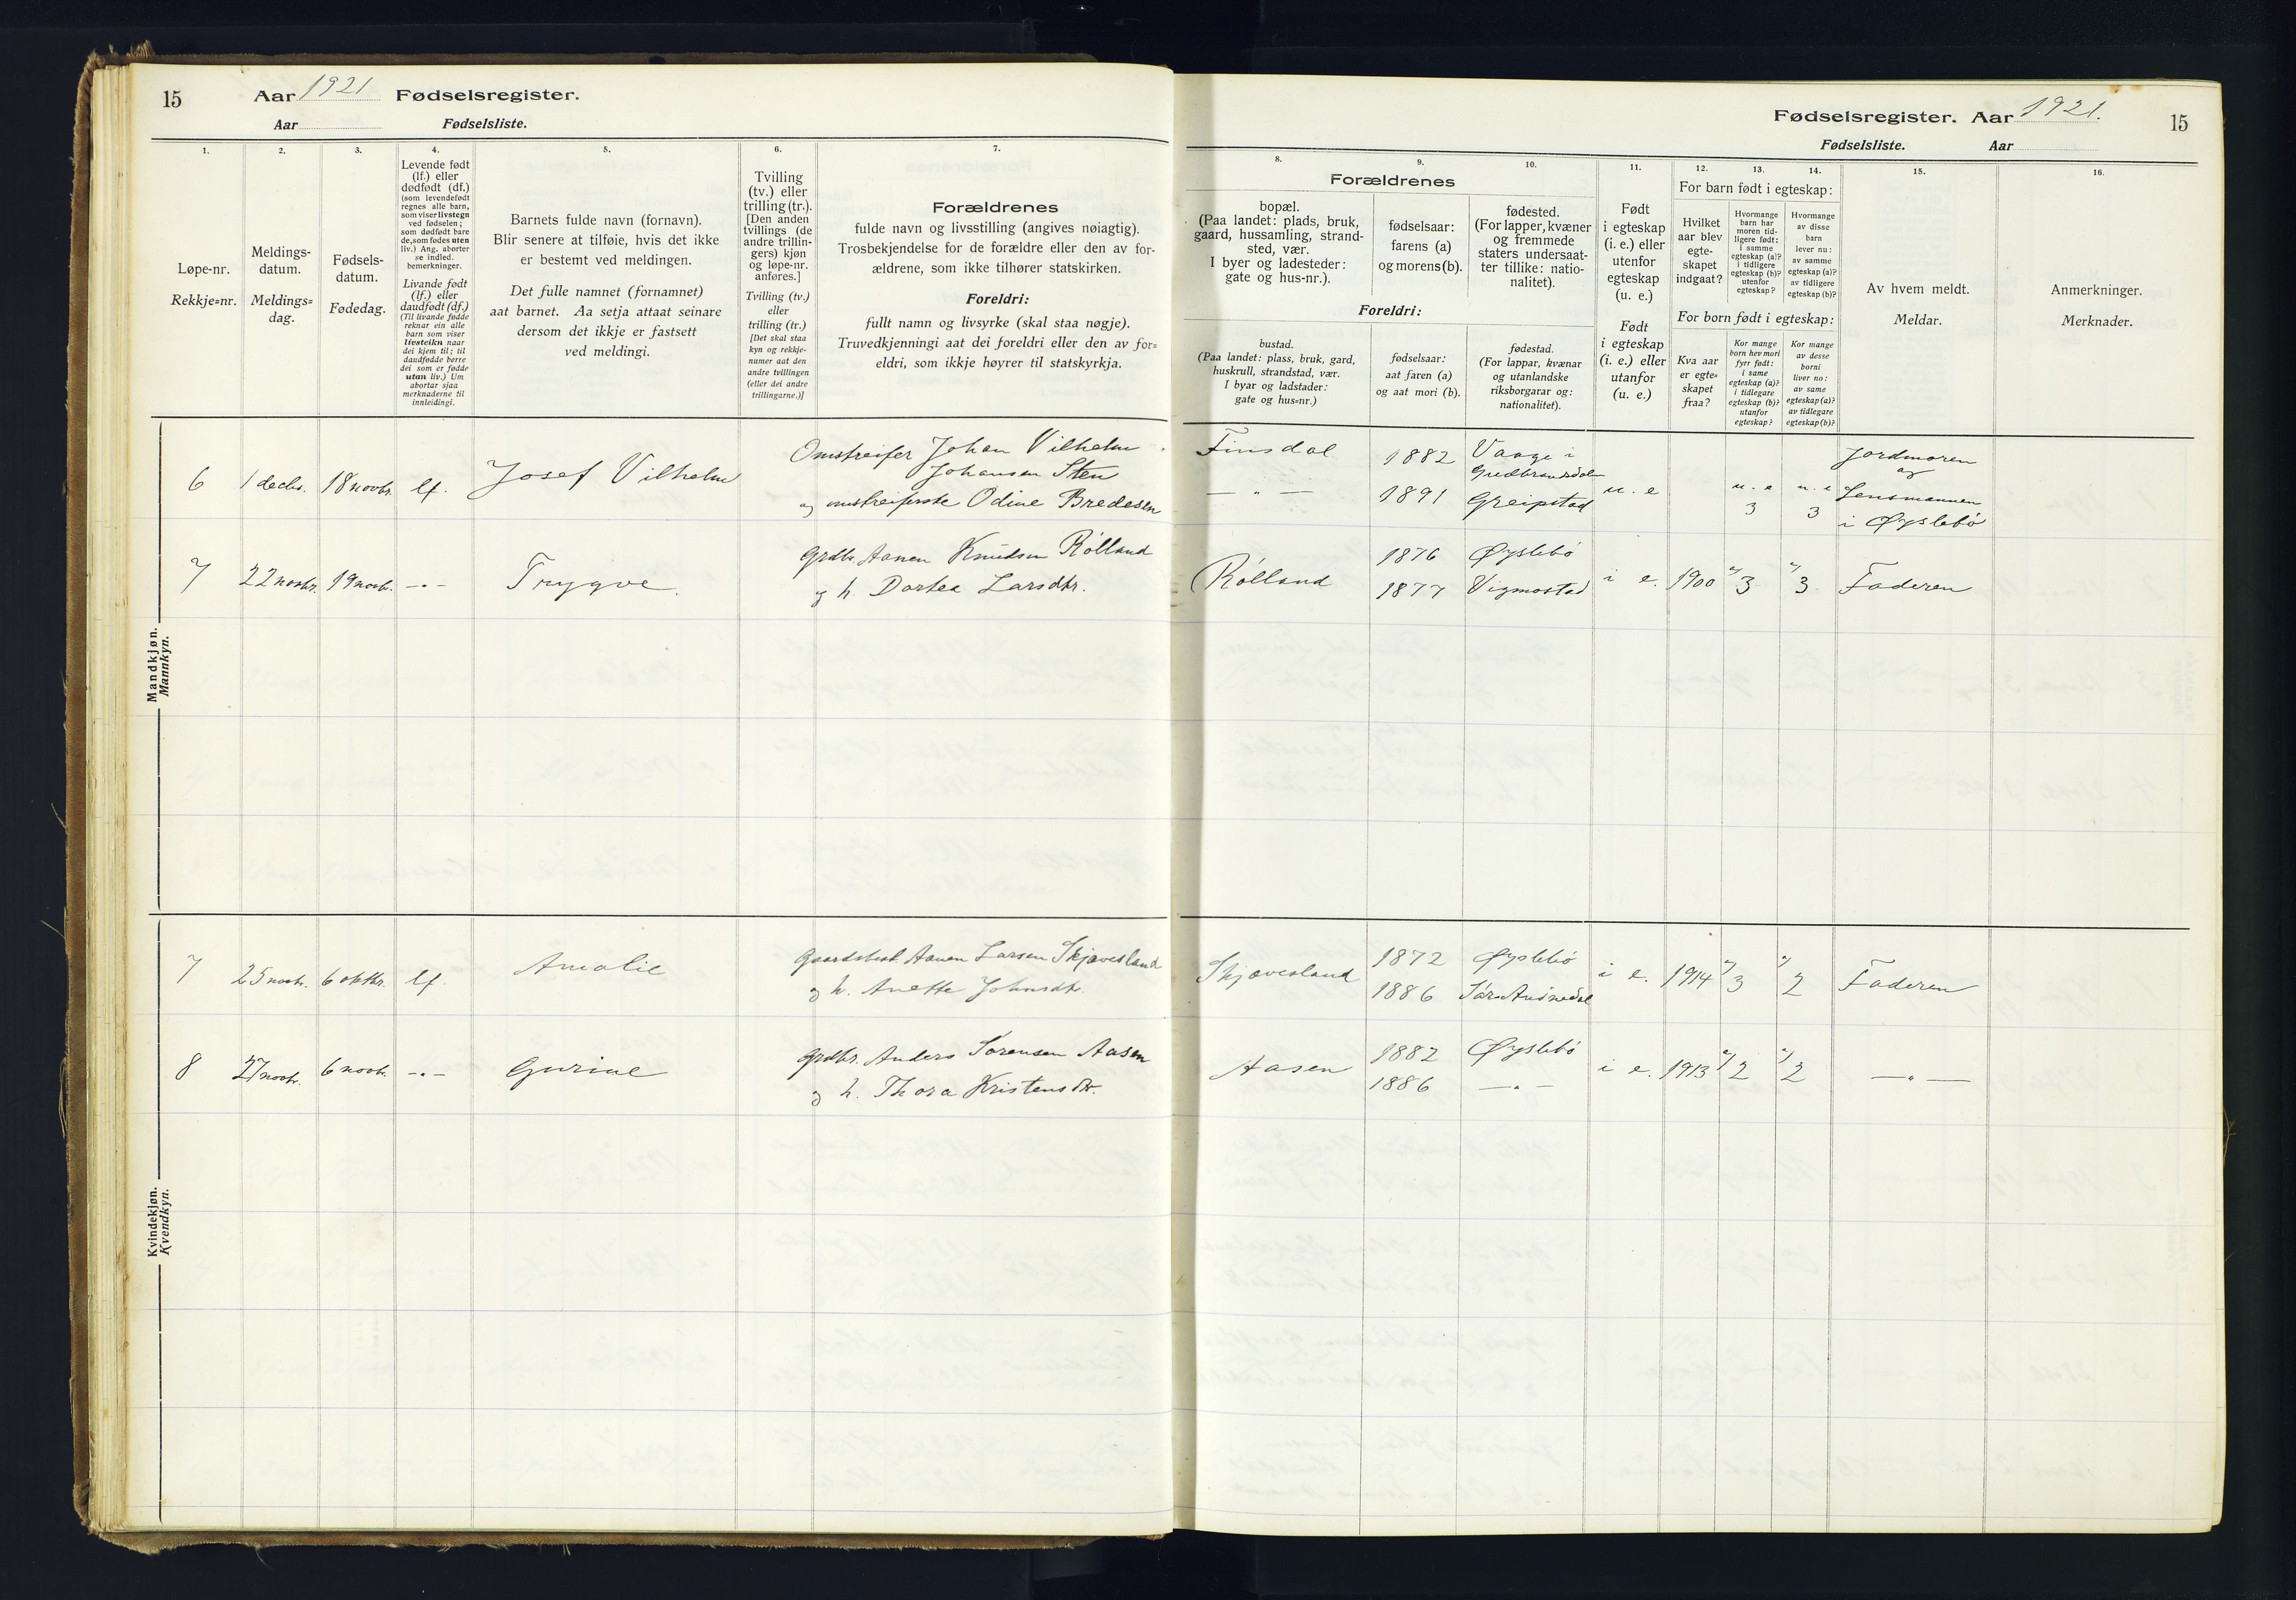 15
Aar 1921 Fødselsregister.
Aar Fødselsliste.
1.
2.
3.
4.
5.
6.
7.
Løpe-nr.
Rekkje=nr.
Meldings-
datum.
Meldings=
dag.
Fødsels-
datum.
Fødedag.
Levende født
(lf.) eller
dødfødt (df.)
(som levendefødt
regnes alle barn,
som viser livstegn
ved fødselen;
som dødfødt bare
de, som fødes uten
liv.) Ang. aborter
se indled.
bemerkninger.
Livande født
(lf.) eller
daudfødt (df.)
(Til livande fødde
reknar ein alle
barn som viser
livsteikn naar
dei kjem til; til
daudfødde berre
dei som er fødde
utan liv.) Um
abortar sjaa
merknaderne til
innleidingi.
Barnets fulde navn (fornavn).
Blir senere at tilføie, hvis det ikke
er bestemt ved meldingen.
Det fulle namnet (fornamnet)
aat barnet. Aa setja attaat seinare
dersom det ikkje er fastsett
ved meldingi.
Tvilling
(tv.) eller
trilling (tr.).
[Den anden
tvillings (de
andre trillin-
gers) kjøn
og løpe-nr.
anføres.]
Tvilling (tv.)
eller
trilling (tr.)
[Det skal staa
kyn og rekkje-
numer aat den
andre tvillingen
(eller dei andre
trillingarne.)]
Forældrenes
fulde navn og livsstilling (angives nøiagtig).
Trosbekjendelse for de forældre eller den av for-
ældrene, som ikke tilhører statskirken.
Foreldri:
fullt namn og livsyrke (skal staa nøgje).
Truvedkjenningi aat dei foreldri eller den av for=
eldri, som ikkje høyrer til statskyrkja.
Mandkjøn.
Mannkyn.
6 1 decbr. 18 novbr. lf. Josef Vilhelm
Omstreifer Johan Vilhelm
Johansen Sten
og omstreiferske Odine Bredesen
7 22 novbr. 19 novb. -"- Trygve.
Grdbr. Aanen Knudsen Rölland
og h. Dortea Larsdtr.
Kvindekjøn.
Kvendkyn.
7 25 novb. 6 oktbr. lf. Amalie
Gaardsbest. Aanen Larsen Skjævesland
og h. Anette Johnsdtr.
8 27 novb. 6 novb. -"- Gurine
Grdbr. Anders Sørensen Aasen
og h. Thora Kristensdtr.
Fødselsregister. Aar 1921.
15
Fødselsliste. Aar
8.
9.
10.
11.
12.
13.
14.
15.
16.
Forældrenes
bopæl.
(Paa landet: plads, bruk,
gaard, hussamling, strand-
sted, vær.
I byer og ladesteder:
gate og hus-nr.).
fødselsaar:
farens (a)
og morens (b).
fødested.
(For lapper, kvæner
og fremmede
staters undersaat-
ter tillike: natio-
nalitet).
Foreldri:
bustad.
(Paa landet: plass, bruk, gard,
huskrull, strandstad, vær.
I byar og ladstader:
gate og hus=nr.)
fødselsaar:
aat faren (a)
og aat mori (b).
fødestad.
(For lappar, kvænar
og utanlandske
riksborgarar og:
nationalitet).
Født
i egteskap
(i. e.) eller
utenfor
egteskap
(u. e.)
Født
i egteskap
(i. e.) eller
utanfor
(u. e.)
For barn født i egteskap:
Hvilket
aar blev
egte-
skapet
indgaat?
Hvormange
barn har
moren tid-
ligere født:
i samme
egteskap (a)?
i tidligere
egteskap (b)?
utenfor
egteskap?
Hvormange
av disse
barn
lever nu:
av samme
egteskap (a)?
av tidligere
egteskap (b)?
For born født i egteskap:
Kva aar
er egte=
skapet
fraa?
Kor mange
born hev mori
fyrr født:
i same
egteskap (a)?
i tidlegare
egteskap (b)?
utanfor
egteskap?
Kor mange
av desse
borni
liver no:
av same
egteskap (a)?
av tidlegare
egteskap (b)?
Av hvem meldt.
Meldar.
Anmerkninger.
Merknader.
Finsdal 1882 Vaage i
Gudbrandsdalen
— " — 1891 Greipstad u. e
u. e 3 u. e 3
Jordmoren
og
Lensmannen
i Øyslebö
Rölland 1876 Øyslebö
1877 Vigmostad i e. 1900 a/ 3 a/ 3 Faderen
Skjævesland 1872 Øyslebö
1886 Sør-Audnedal i e. 1914 a/ 3 a/ 2 Faderen
Aasen 1882 Øyslebö
1886 — " — i e. 1913 a/ 2 a/ 2 — " —